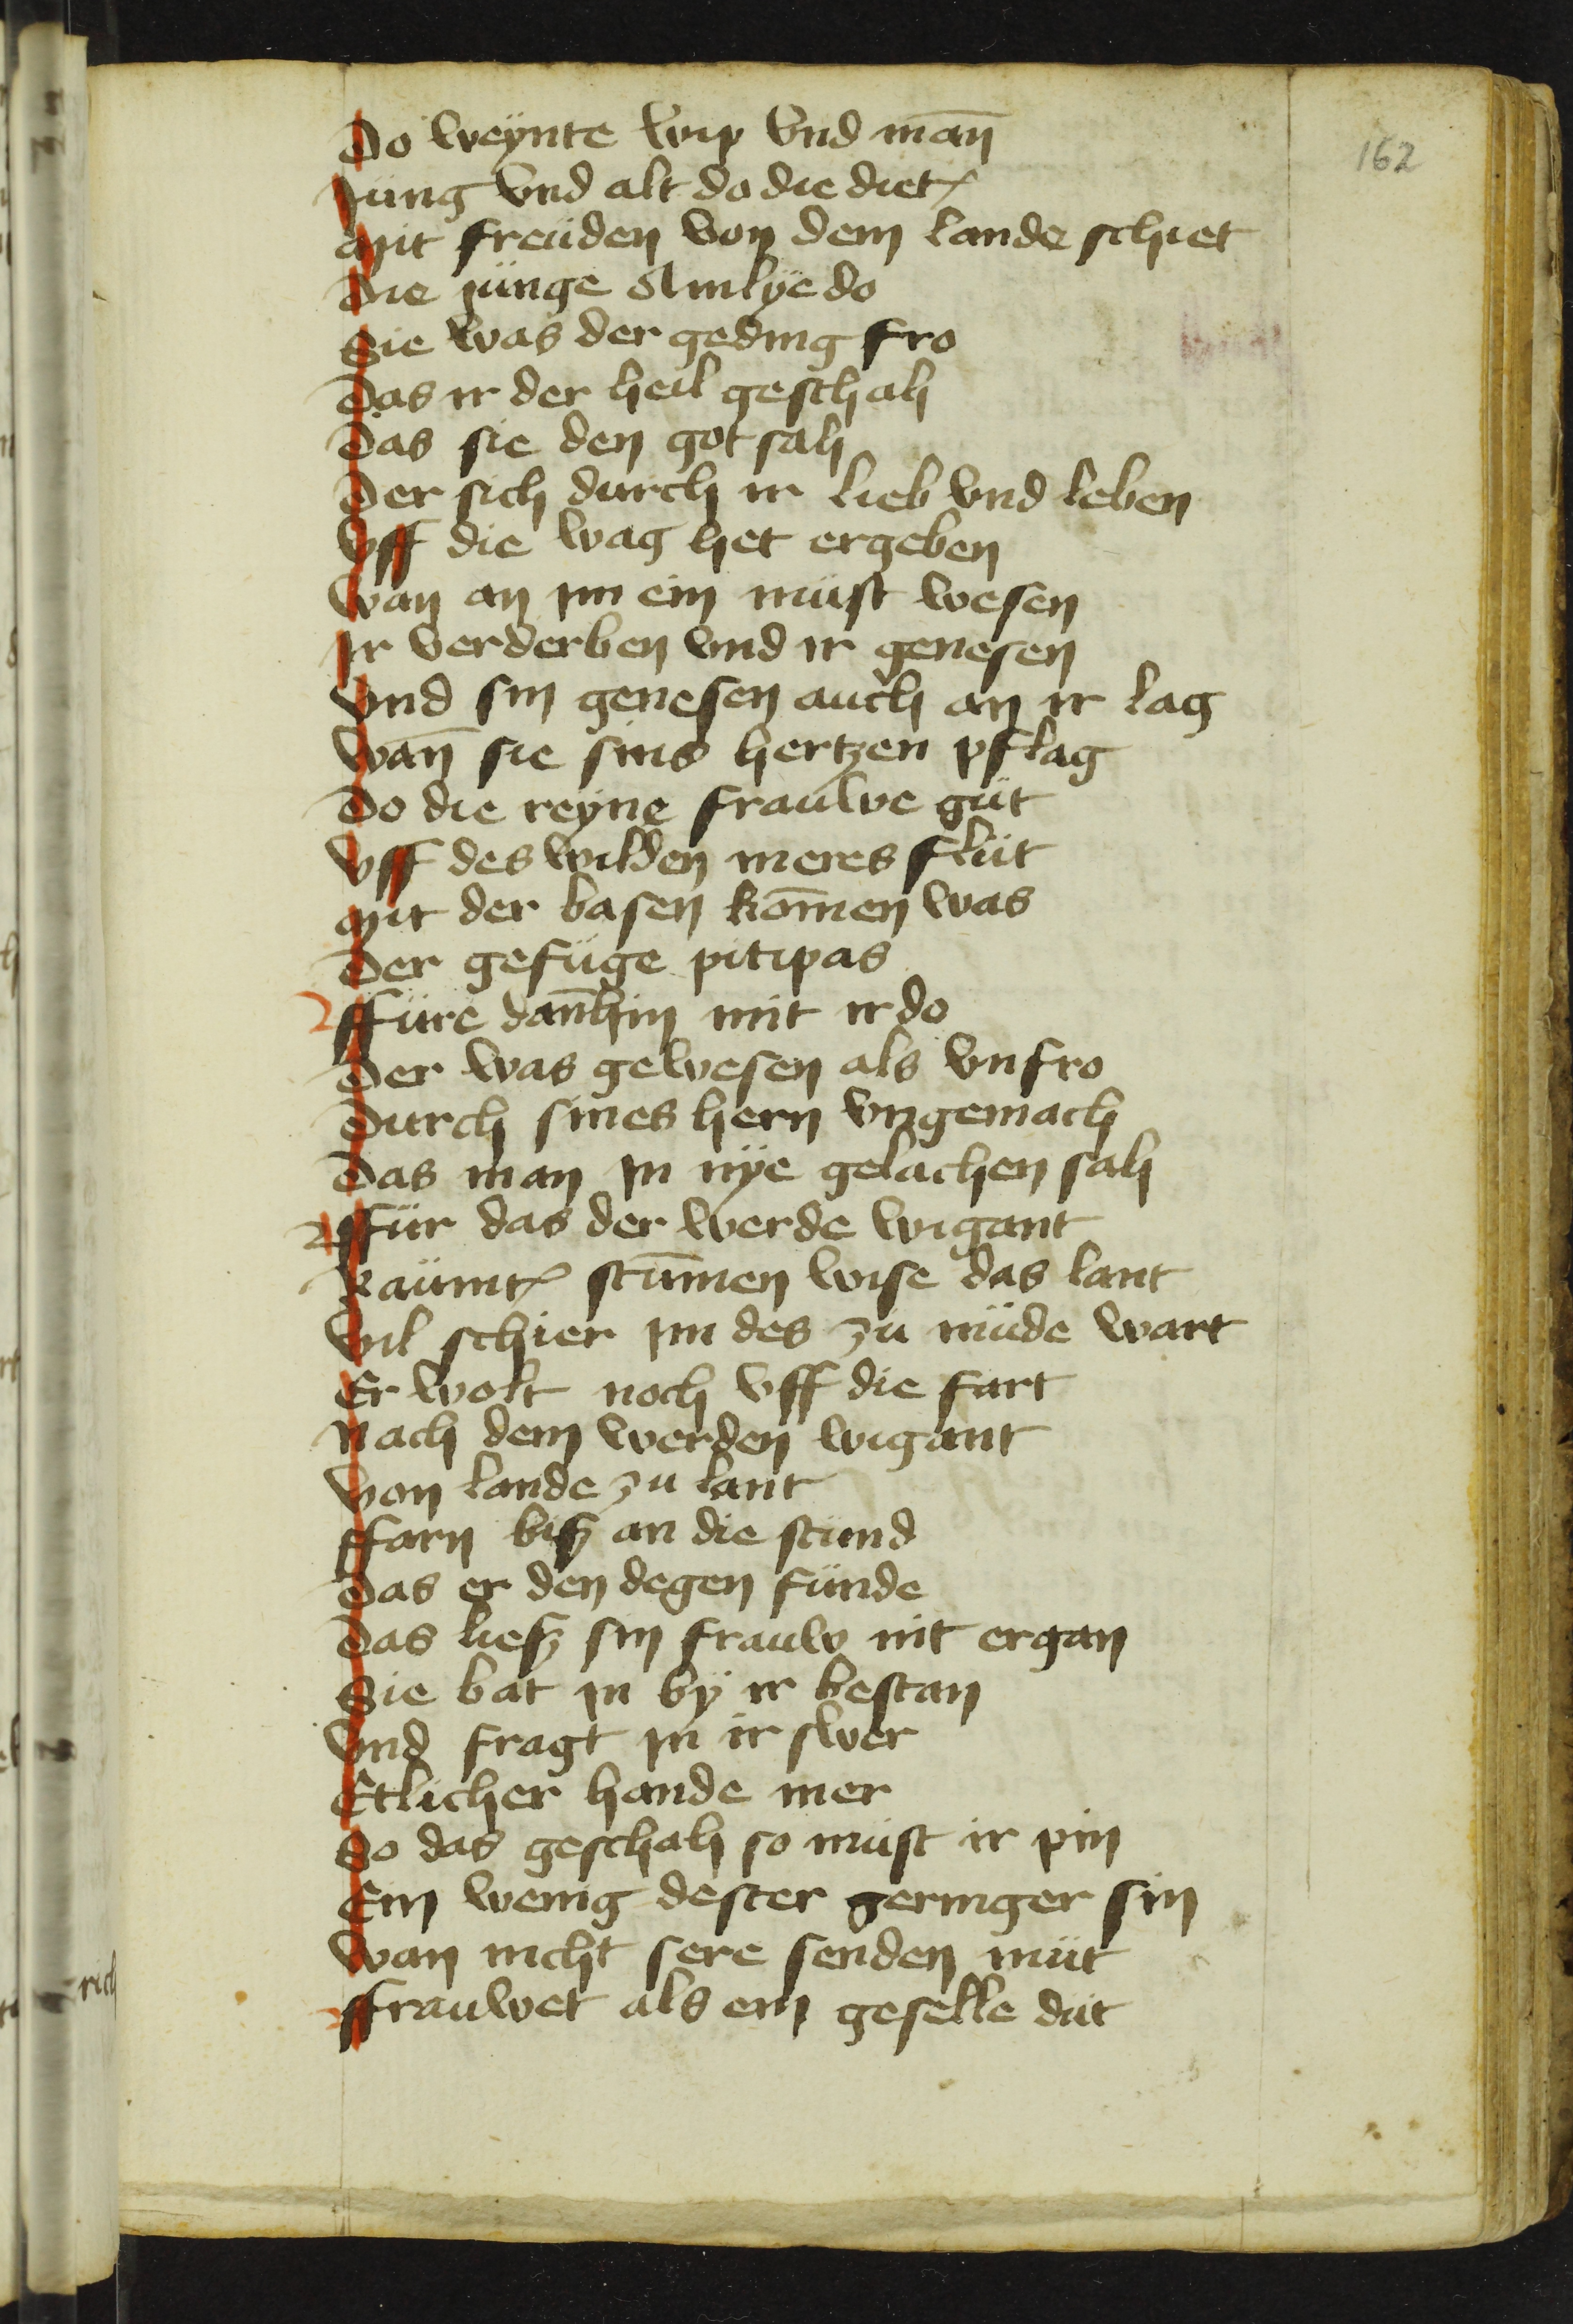 162
Do weynte wip vnd man̄
Jung vnd alt do die diet
Mit freüden von dem lande schiet
Die jünge Amlye do
Sie was der geding fro
Das ir der heil geschah
Das sie den got sah
Der sich durch ir lieb vnd leben
Vff die wag het ergeben
Wan an jm ein müst wesen
Jr verderben vnd ir genesen
Vnd sin genesen auch an ir lag
Wan̄ sie sins hertzen pflag
Do die reyne frauwe güt
Vff des wilden meres flüt
Mit der basen kom̄en was
Der gefüge pitipas
Ffüre dan̄hin mit ir do
Der was gewesen als vnfro
Durch sines hern vngemach
Das man jn nye gelachen sah
Ffür das der werde wigant
Raümt stum̄en wise das lant
Vil schier jm des zu müde wart
Er wolt noch vff die fart
Nach dem werden wigant
Von lande zu lant
Ffarn biß an die stünd
Das er den degen fünde
Das ließ sin frauw nit ergan
Sie bat jn by ir bestan
Vnd fragt jn ir swer
Etlicher hande mer
So das geschah so müst ir pin
Ein wenig dester geringer sin
Wan nicht sere senden müt
Ffrauwet als ein geselle düt